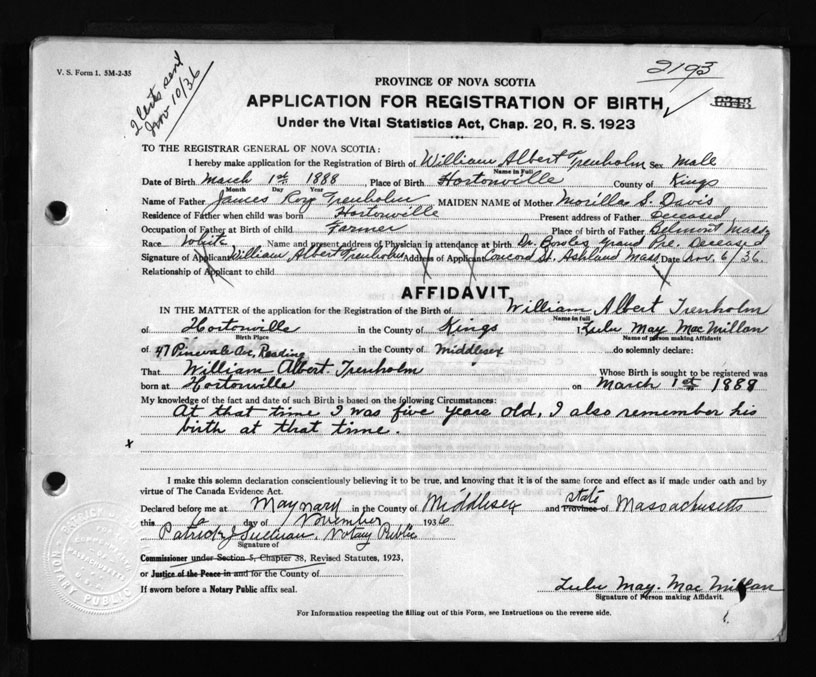 V. S. Form 1. 5M-2-35
2 certs sent
Nov 10/36
2193
PROVINCE OF NOVA SCOTIA
APPLICATION FOR REGISTRATION OF BIRTH
Under the Vital Statistics Act, Chap. 20, R. S. 1923
TO THE REGISTRAR GENERAL OF NOVA SCOTIA:
I hereby make application for the Registration of Birth of William Albert Trenholm Sex Male
Name in Full
Date of Birth March 1st 1888 Place of Birth Hortonville County of Kings
Month Day Year
Name of Father James Roy Trenholm MAIDEN NAME of Mother Morilla S. Davis
Residence of Father when child was born Hortonville Present address of Father Deceased
Occupation of Father at Birth of child Farmer Place of birth of Father Belmont Mass
Race White Name and present address of Physician in attendance at birth Dr. Bowles Grand Pre. Deceased
Signature of Applicant William Albert Trenholm Address of Applicant Concord St. Ashland Mass Date Nov. 6/36.
Relationship of Applicant to child
AFFIDAVIT
IN THE MATTER of the application for the Registration of the Birth of William Albert Trenholm
Name in full
of Hortonville in the County of Kings I, Lulu May MacMillan
Birth Place Name of person making Affidavit
of 47 Pinevale Av, Reading in the County of Middlesex do solemnly declare:
That William Albert Trenholm Whose Birth is sought to be registered was
born at Hortonville on March 1st 1888
My knowledge of the fact and date of such Birth is based on the following Circumstances:
At that time I was five years old, I also remember his
birth at that time.
x
I make this solemn declaration conscientiously believing it to be true, and knowing that it is of the same force and effect as if made under oath and by
virtue of The Canada Evidence Act.
Declared before me at Maynard in the County of Middlesex and Province of state Massachusetts
this 6 day of November 1936
Patrick J Sullivan, Notary Public
Signature of
Commissioner under Section 5, Chapter 38, Revised Statutes, 1923,
or Justice of the Peace in and for the County of
If sworn before a Notary Public affix seal.
Lulu May. MacMillan
Signature of Person making Affidavit.
For Information respecting the filling out of this Form, see Instructions on the reverse side.
NOTARY PUBLIC